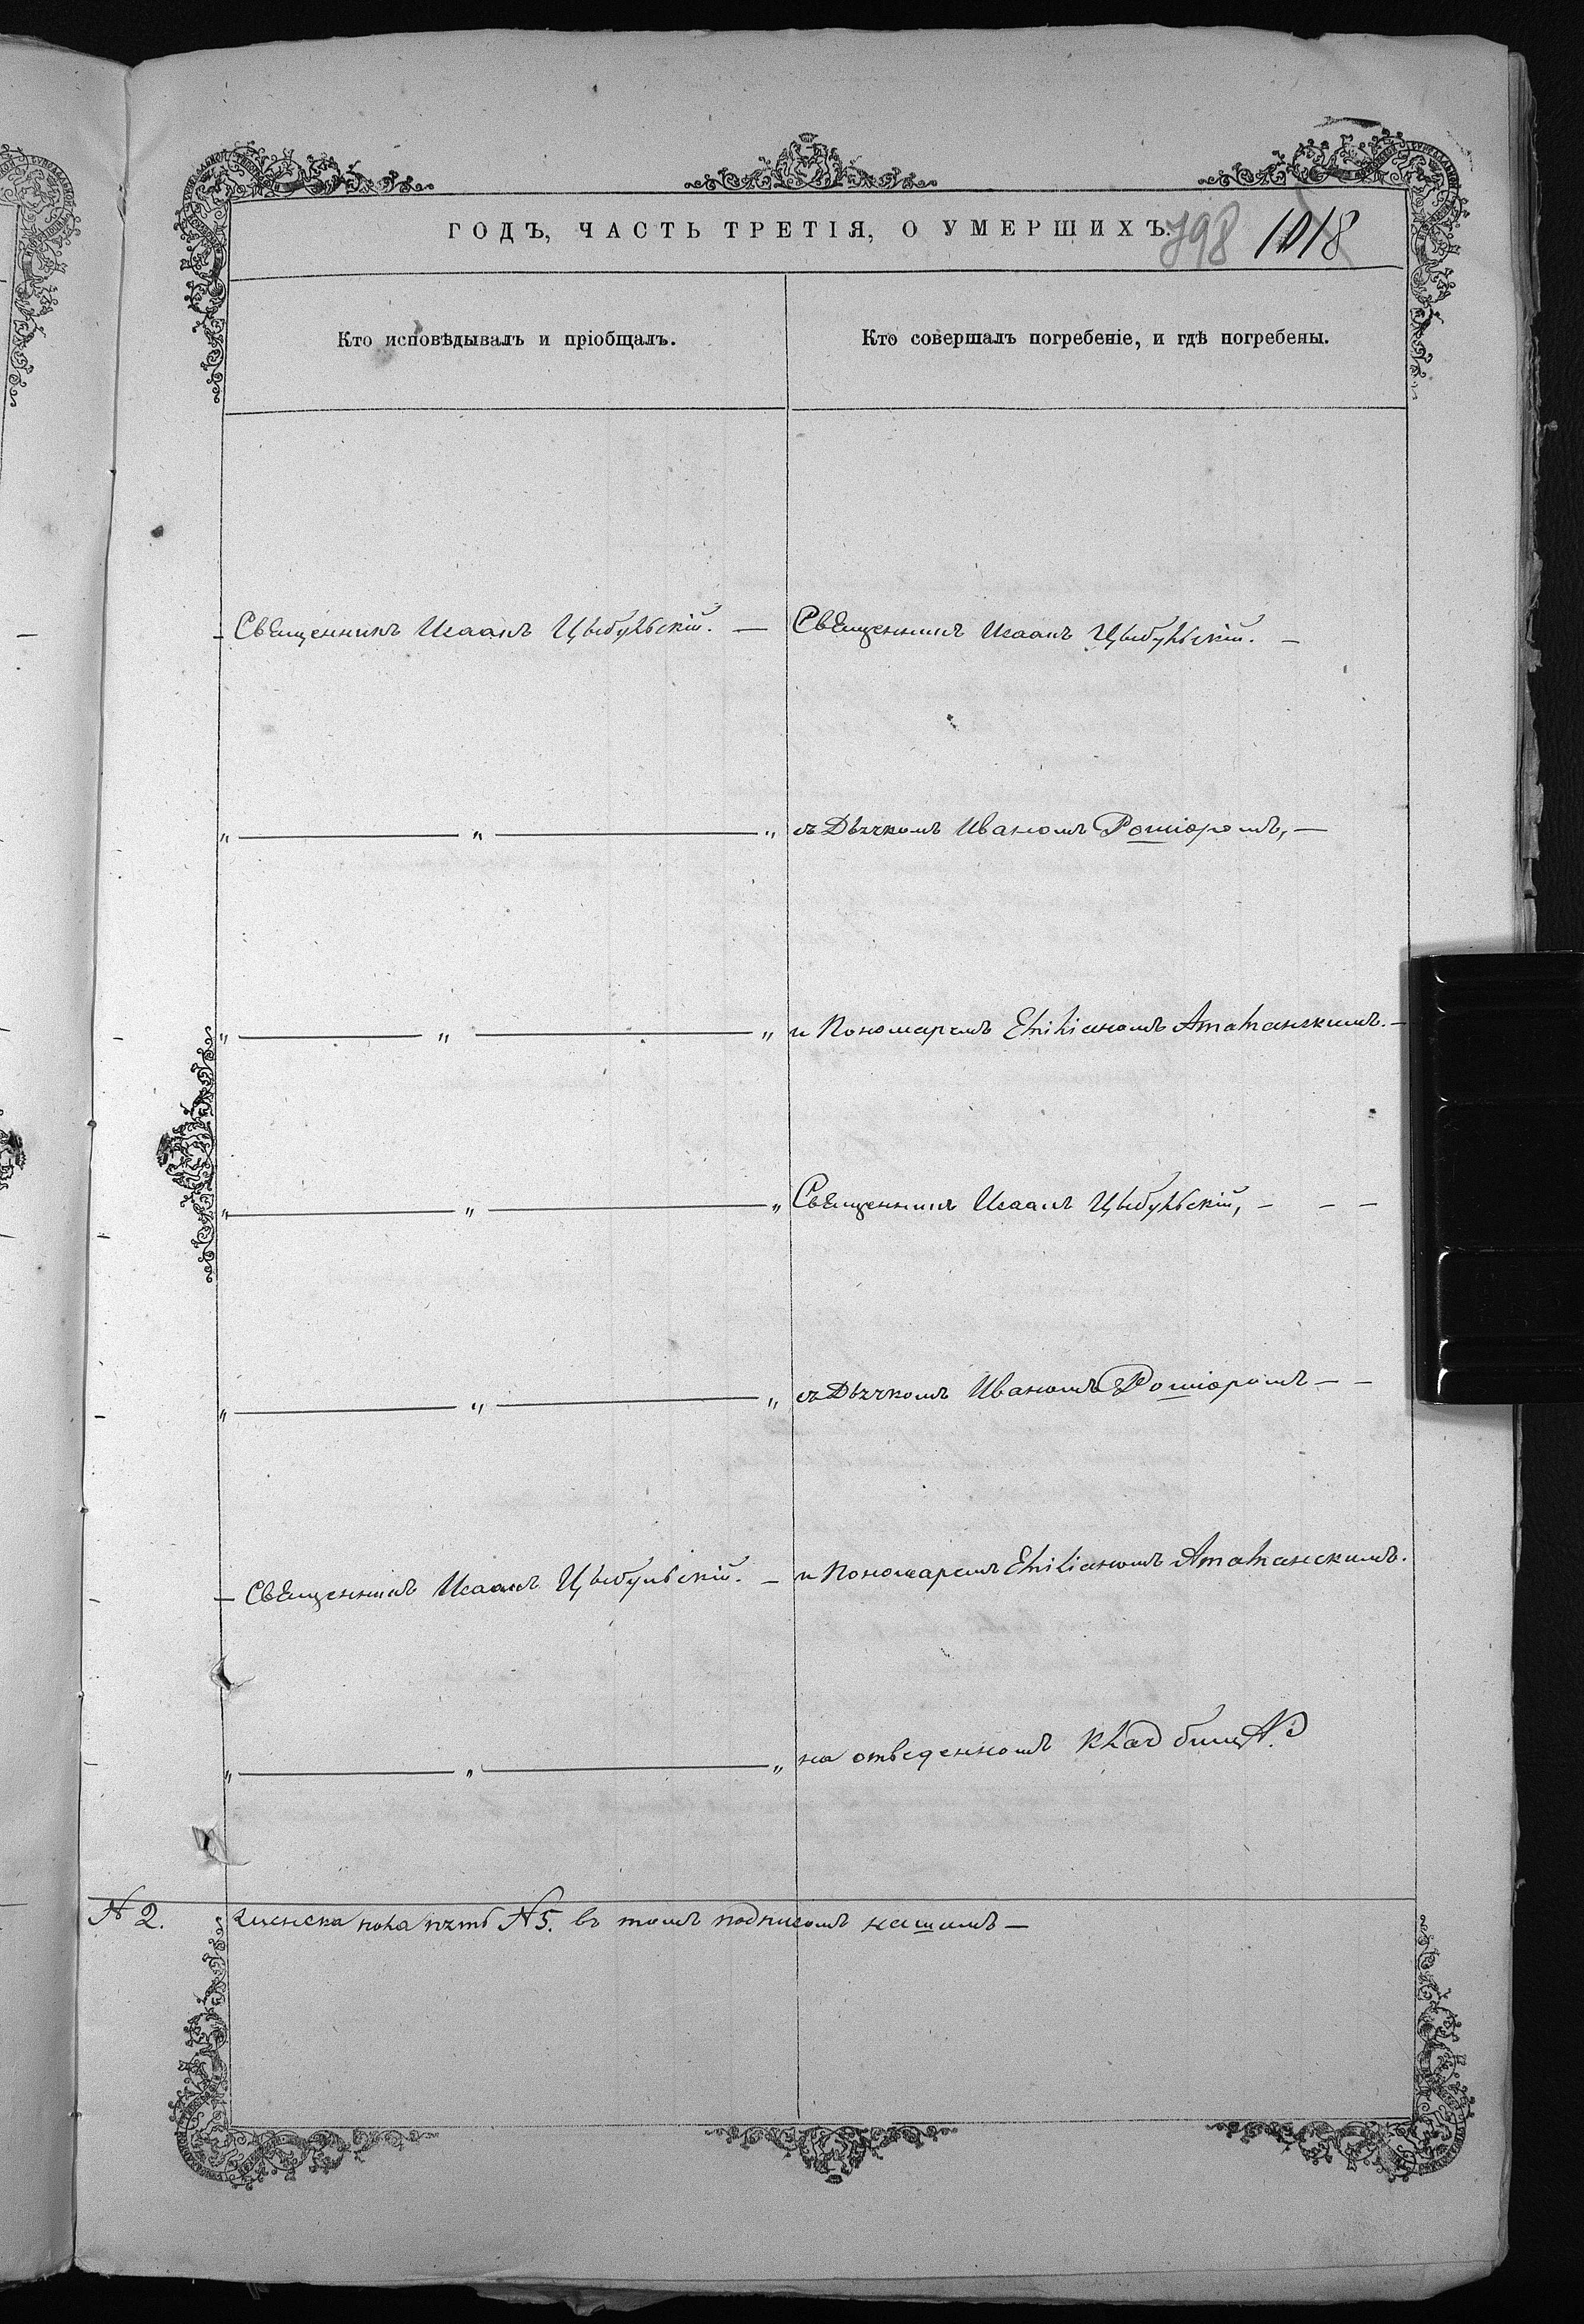 ГОДЪ, ЧАСТЬ ТРЕТІЯ, О УМЕРШИХЪ. 798 1018
Кто исповѣдывалъ и пріобщалъ.
Кто совершалъ погребеніе, и гдѣ погребены.
Священникъ Исаакъ Цыбульскій. — Священникъ Исаакъ Цыбульскій. —
„ — „ — „ съ Дьячкомъ Иваномъ Рошіоромъ, —
„ — „ — „ и Пономаремъ Емиліаномъ Аматанскимъ. —
„ — „ — „ Священникъ Исаакъ Цыбульскій, — — —
„ — „ — „ съ Дьячкомъ Иваномъ Рошіоромъ — —
Священникъ Исаакъ Цыбульскій. — и Пономаремъ Емиліаномъ Аматанскимъ.
„ — „ — „ на отведенномъ кладбищѣ
№ 2. женска пола пять № 5. въ томъ подписомъ нашимъ —